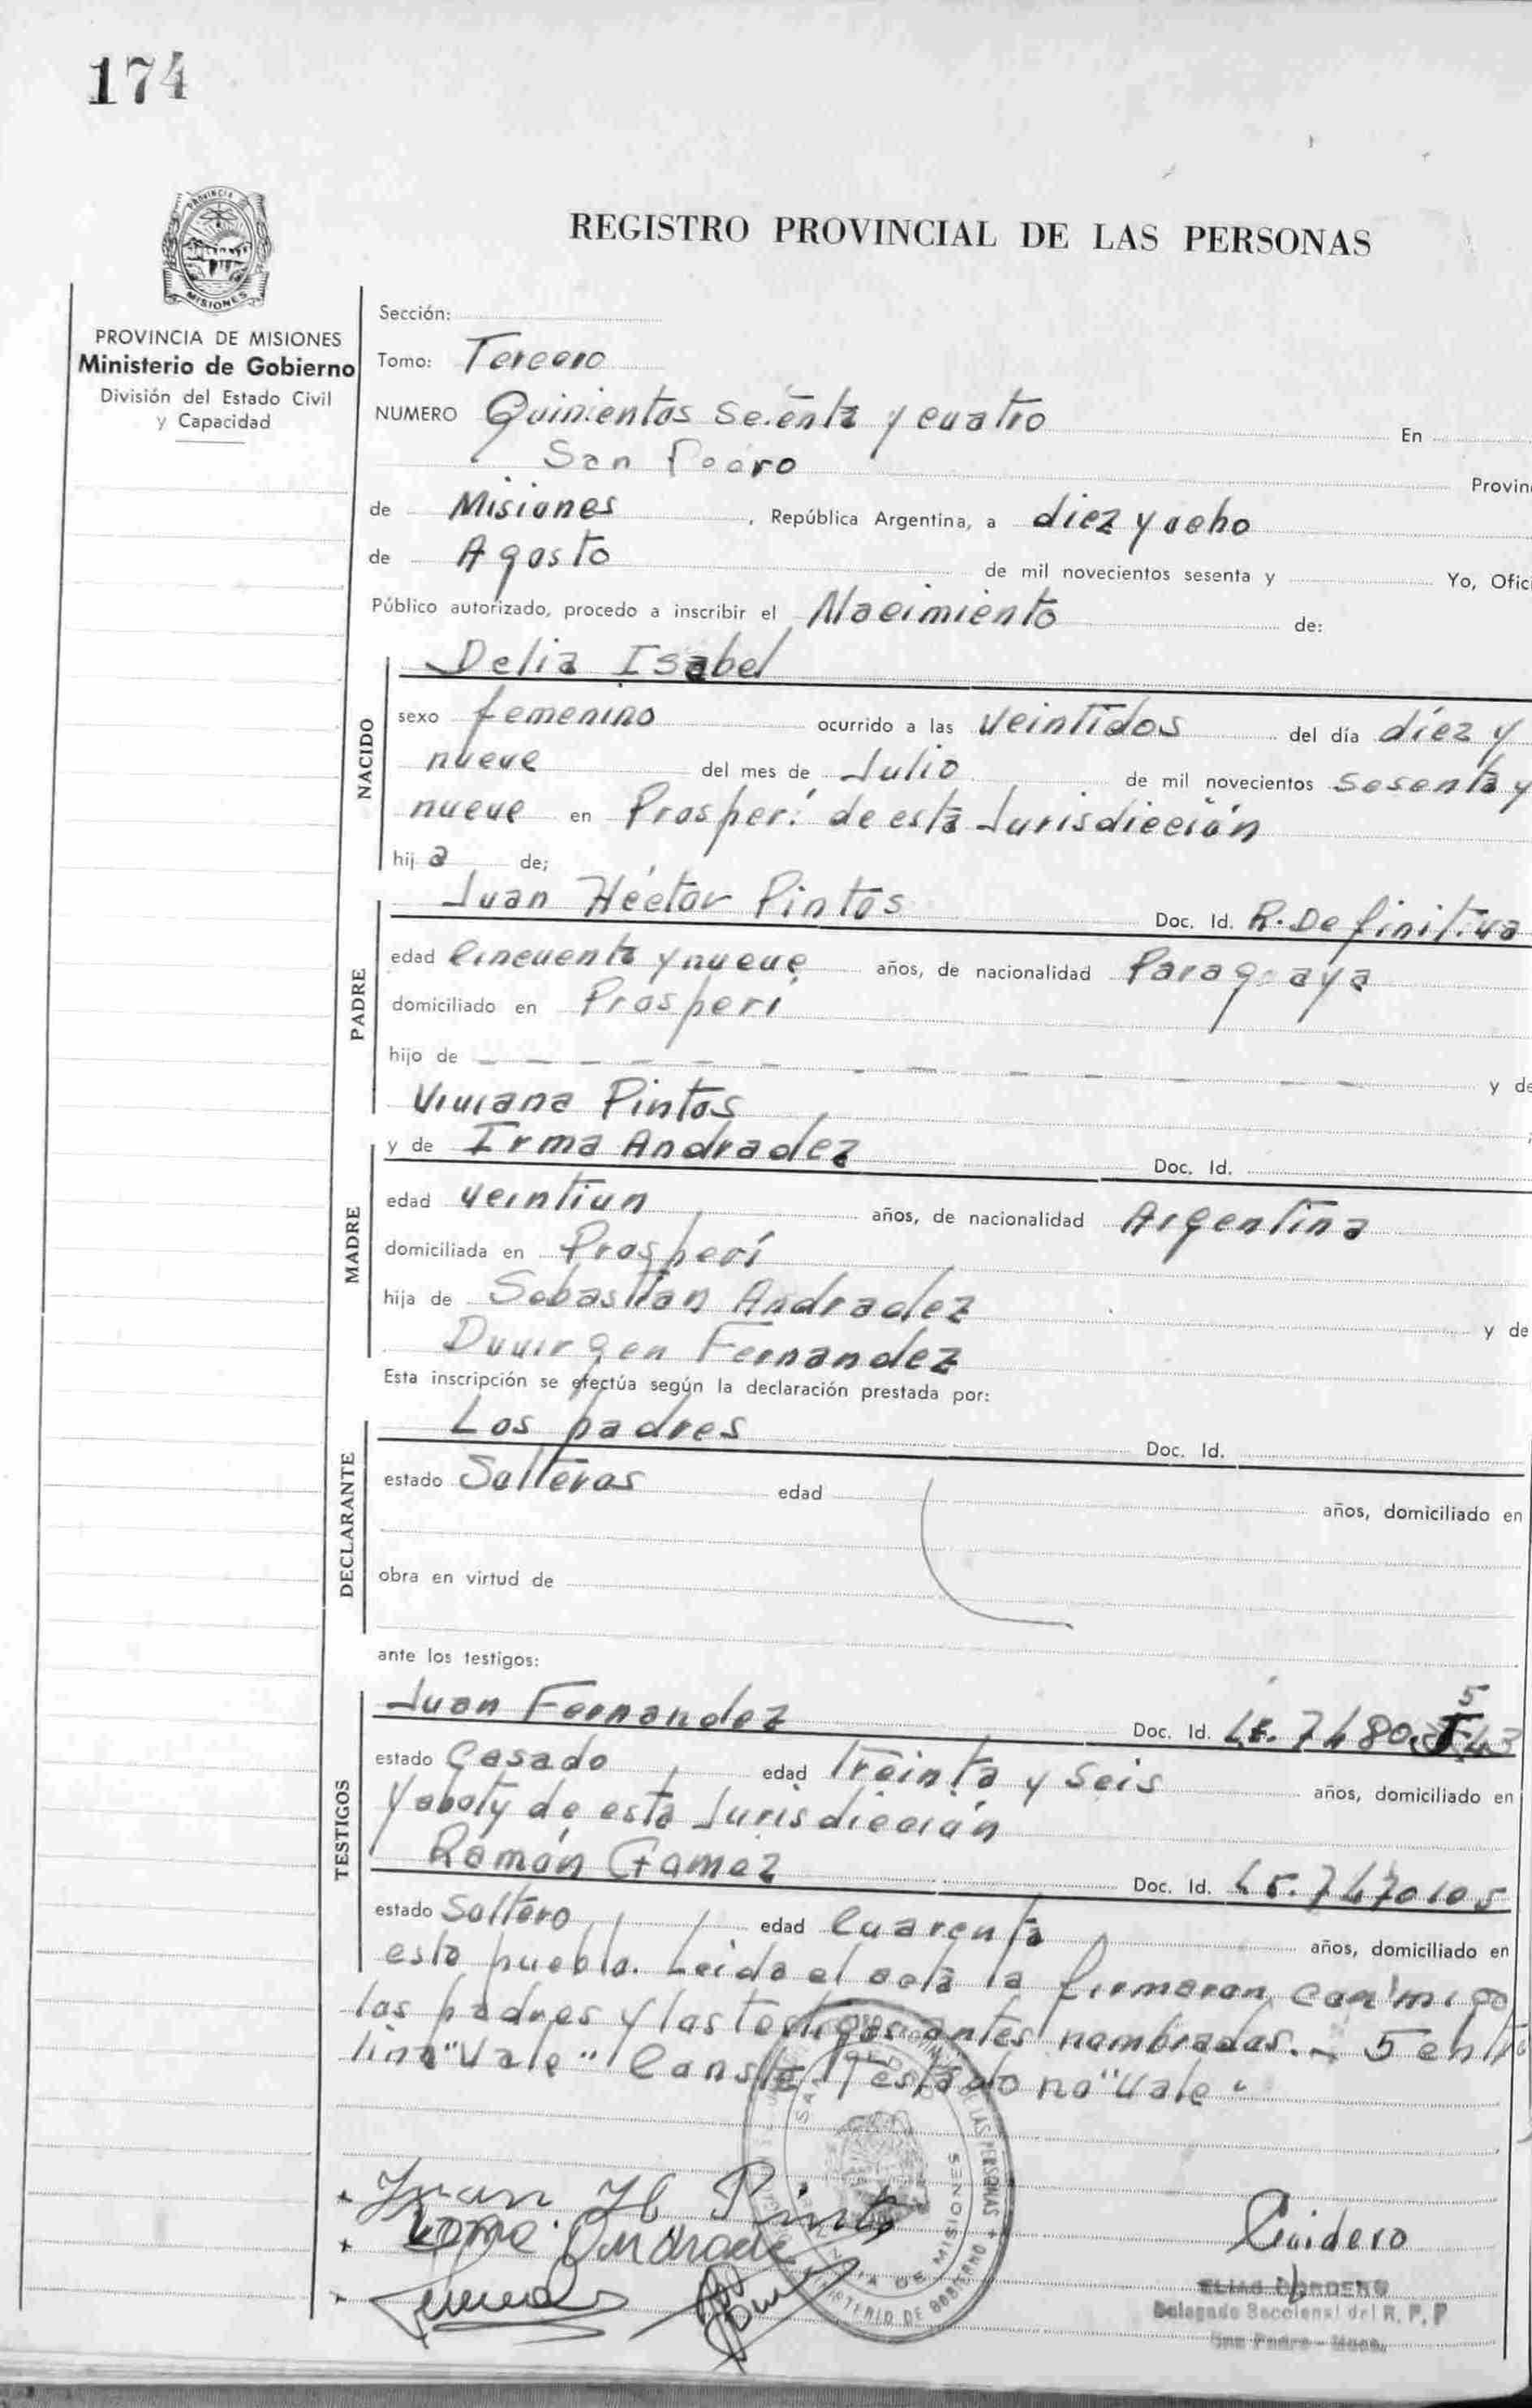 174
PROVINCIA
MISIONES
REGISTRO PROVINCIAL DE LAS PERSONAS
PROVINCIA DE MISIONES
Ministerio de Gobierno
División del Estado Civil
y Capacidad
Sección:
Tomo: Tercero
NUMERO Quinientos Sesenta y cuatro En
San Pedro Provin
de Misiones, República Argentina, a diez y ocho
de Agosto de mil novecientos sesenta y Yo, Ofic
Público autorizado, procedo a inscribir el Nacimiento de:
Delia Isabel
NACIDO
sexo femenino ocurrido a las veintidos del día diez y
nueve del mes de Julio de mil novecientos sesenta y
nueve en Prosperí de esta Jurisdicción
hija de;
PADRE
Juan Héctor Pintos Doc. Id. R. Definitiva
edad Cincuenta y nueve años, de nacionalidad Paraguaya
domiciliado en Prosperi
hijo de - - - - - - - - - y de
Viviana Pintos
MADRE
y de Irma Andradez Doc. Id.
edad veintiun años, de nacionalidad Argentina
domiciliada en Prosperí
hija de Sebastian Andradez y de
Duvirgen Fernandez
Esta inscripción se efectúa según la declaración prestada por:
DECLARANTE
Los padres Doc. Id.
estado Solteros edad años, domiciliado en
obra en virtud de
ante los testigos:
TESTIGOS
Juan Fernandez Doc. Id. LE.
estado Casado edad treinta y seis años, domiciliado en
Yaboty de esta Jurisdicción
Ramón Gamez Doc. Id. LE. 7470105
estado Soltero edad Cuarenta años, domiciliado en
este pueblo. Leida el acta la firmaron conmigo
los padres y los testigos antes nombrados.- 5 entre
linea "Vale" Conste Testado no "Vale"
SAN PEDRO
DE LAS PERSONAS
PROVINCIA DE MISIONES
MINISTERIO DE GOBIERNO
Juan H Pinto
Irma Andrade
ELIAS CORDERO
Delegado Seccional del R. P. P
San Pedro - Mnes.